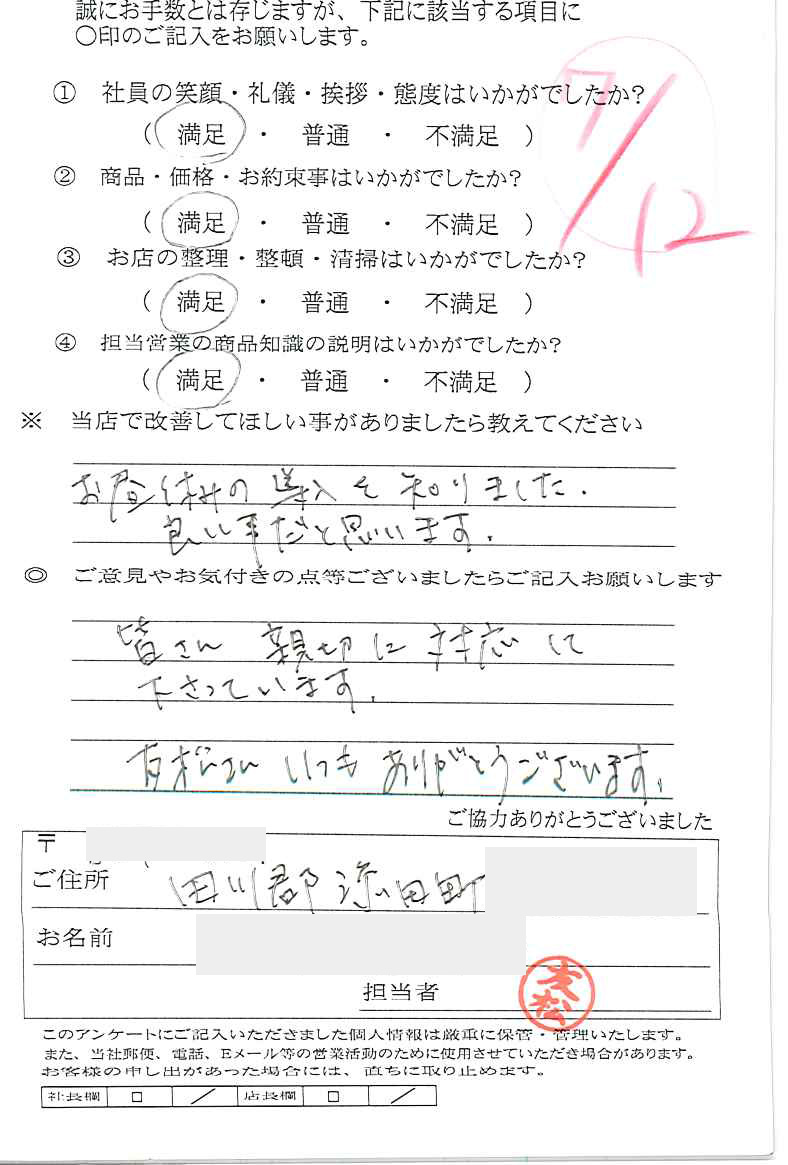 誠にお手数とは存じますが、下記に該当する項目に
○印のご記入をお願いします。
7/12
① 社員の笑顔・礼儀・挨拶・態度はいかがでしたか?
( 満足 ・ 普通 ・ 不満足 )
② 商品・価格・お約束事はいかがでしたか?
( 満足 ・ 普通 ・ 不満足 )
③ お店の整理・整頓・清掃はいかがでしたか?
( 満足 ・ 普通 ・ 不満足 )
④ 担当営業の商品知識の説明はいかがでしたか?
( 満足 ・ 普通 ・ 不満足 )
※ 当店で改善してほしい事がありましたら教えてください
お昼休みの導入を知りました.
良い事だと思います.
◎ ご意見やお気付きの点等ございましたらご記入お願いします
皆さん 親切に対応して
下さっています.
いつも ありがとうございます.
ご協力ありがとうございました
〒
ご住所 田川郡添田町
お名前
担当者 友松
このアンケートにご記入いただきました個人情報は厳重に保管・管理いたします。
また、当社郵便、電話、Eメール等の営業活動のために使用させていただき場合があります。
お客様の申し出があった場合には、直ちに取り止めます。
社長欄 □ / 店長欄 □ /